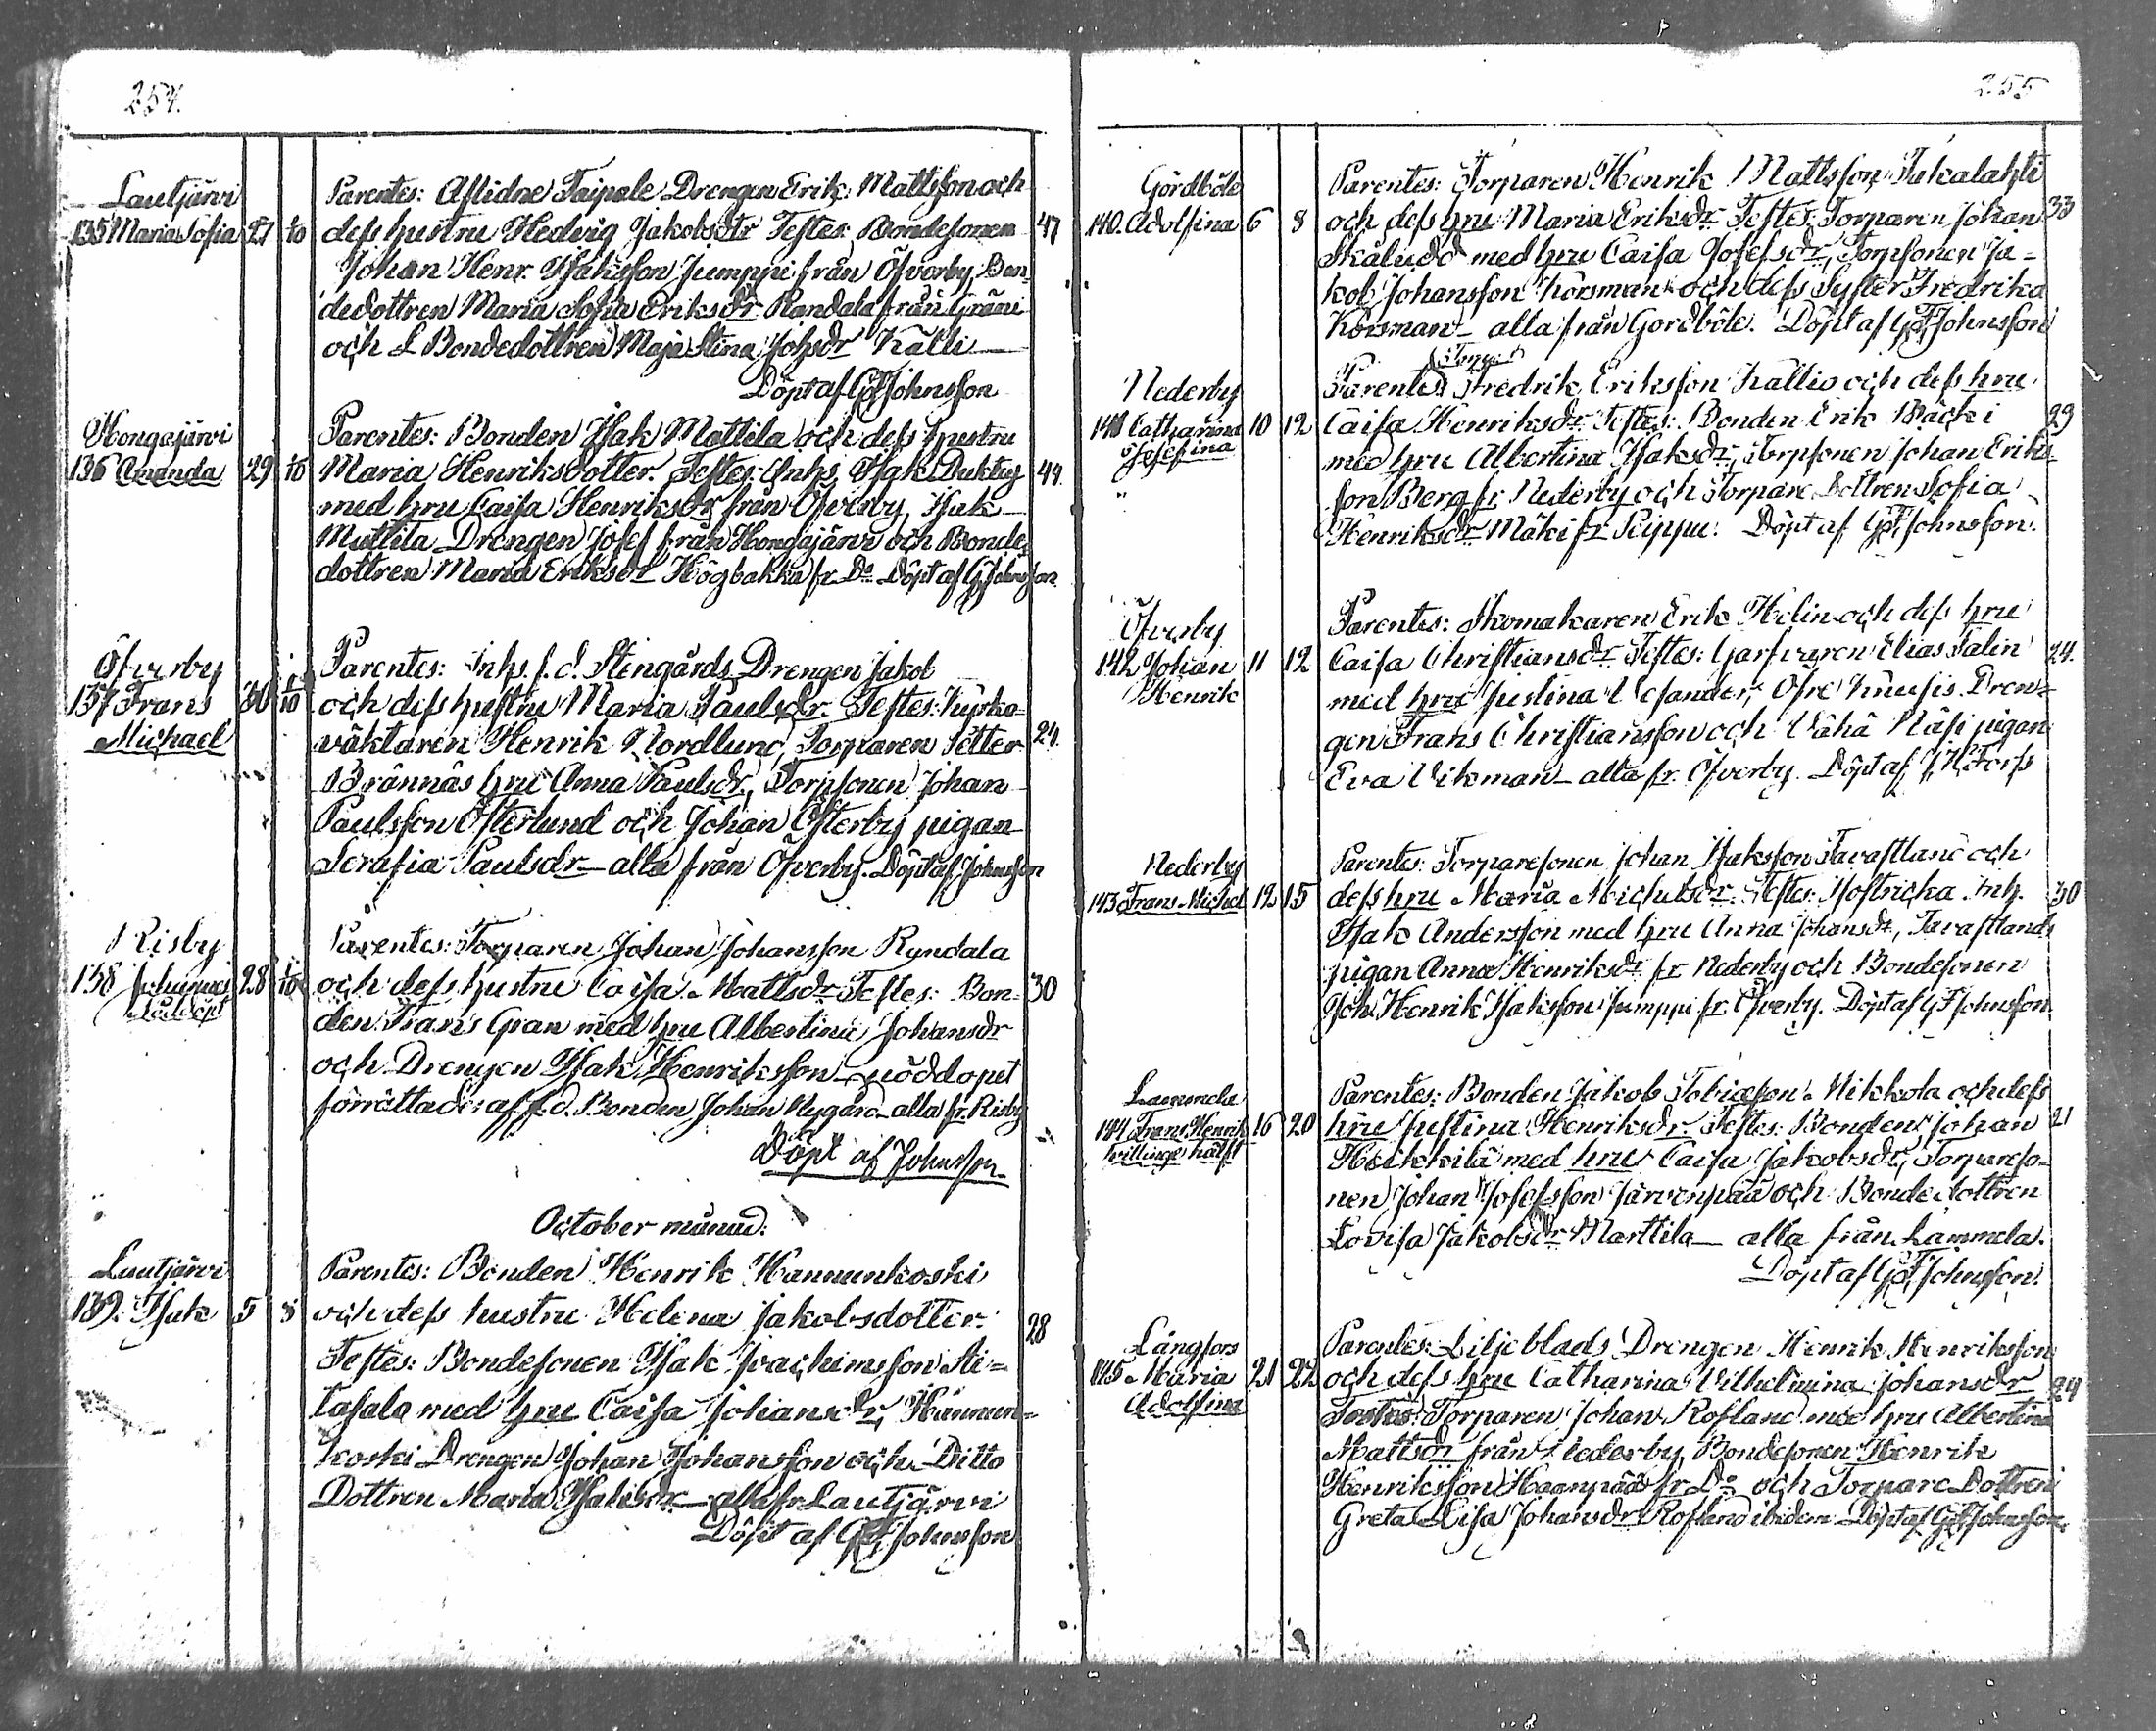 254.
Lautjärvi
135 Maria Sofia 27 1/10
Parentes: Aflidne Taipale Drengen Erik Mattsson och
dess hustru Hedvig Jakobsdtr Testes Bondesonen 47
Johan Henr. Isaksson Jumppi från Öfverby, Bon-
dedottren Maria Sofia Eriksdr Randala från Gräni
och L Bondedottren Maja Stina Johsdr Källi
Döpt af G F Johnsson
Hongajärvi
136 Amanda 29 1/10
Parentes: Bonden Isak Mattila och dess hustru
Maria Henriksdotter. Testes: Inhs Isak Duktig 44.
med hru Caisa Henriksdr från Öfverby, Isak
Mattila Drengen Josef från Hongajärvi och Bonde-
dottren Maria Eriksdr Högbakka fr Do Döpt af G F Johnsson
Öfverby
137 Frans 30 1/10
Michael
Parentes: Inhs. f. d. Stengårds Drengen Jakob
och dess hustru Maria Paulsdr. Testes: Kyrko-
väktaren Henrik Nordlund, Torparen Petter 24.
Brännäs hru Anna Paulsdr, Torpsonen Johan
Paulsson Österlund och Johan Österby pigan
Serafia Paulsdr alla från Öfverby. Döpt af Johnsson
Risby
138 Johannes 28 1/10
nöddöpt
Parentes: Torparen Johan Johansson Ryndala
och dess hustru Caisa Mattsdr Testes: Bon- 30
den Frans Gran med hru Albertina Johansdr
och Drengen Isak Henriksson nöddopet
förrättades af f.d. Bonden Johan Nygård alla fr. Risby
Döpt af Johnsson
October månad:
Lautjärvi
139. Isak 5 8
Parentes: Bonden Henrik Hannunkoski
och dess hustru Helena Jakobsdotter. 28
Testes: Bondesonen Isak Joachimsson Ai-
tasalo med hru Caisa Johansdr, Hannun-
koski Drengen Johan Johansson och Ditto
Dottren Maria Isaksdr alla fr. Lautjärvi
Döpt af G F Johnsson
255
Gördböle
140. Adolfina 6 8
Parentes: Torparen Henrik Mattsson Jukalahti
och dess hru Maria Eriksdr Testes: Torparen Johan 33
Skäludd med hru Caisa Josefsdr, Torpsonen Ja-
kob Johansson Körsman och dess Syster Fredrika
Körsman alla från Gördböle. Döpt af G F Johnsson
Nederby
141 Catharina 10 12
Josefina
Torp:
Parentes Fredrik Eriksson Kallio och dess hru
Caisa Henriksdr Testes: Bonden Erik Bäcki 29
med hru Albertina Isaksdr, Torpsonen Johan Eriks-
son Berg fr. Nederby och Torpare Dottren Sofia
Henriksdr Mäki fr Peippu: Döpt af G F Johnsson.
Öfverby
142 Johan 11 12
Henrik
Parentes: Skomakaren Erik Helin och dess hru
Caisa Christiansdr Testes: Garfvaren Elias Salin 24.
med hru Justina Vesander, Öfre Knuusi Dren-
gen Frans Christiansson och Vähä Näsi pigan
Eva Vikman alla fr. Öfverby. Döpt af J H Forss
Nederby
143 Frans Michel 12 15
Parentes: Torparesonen Johan Isaksson Tavastland och
dess hru Maria Michelsdr. Testes: Inh. 30
Isak Andersson med hru Anna Johansdr, Tavastlands
pigan Anna Henriksdr fr Nederby och Bondesonen
Joh. Henrik Isaksson Jumppi fr. Öfverby. Döpt af G F Johnsson
Lammela
144 Frans Henrik 16 20
tvillings hälft
Parentes: Bonden Jakob Tobiasson Mikkola och dess
hru Justina Henriksdr Testes: Bonden Johan 21
Heikkilä med hru Caisa Jakobsdr, Torpareso-
nen Johan Josefsson Järvenpää och Bonde dottren
Lovisa Jakobsdr Marttila alla från Lammela.
Döpt af G F Johnsson.
Långfors
145 Maria 21 22
Adolfina
Parentes: Liljeblads Drengen Henrik Henriksson
och dess hru Catharina Vilhelmina Johansdr 24
Testes: Torparen Johan Rosland med hru Albertina
Mattsdr från Nederby, Bondesonen Henrik
Henriksson Haanpää fr Do och Torpare Dottren
Greta Lisa Johansdr Rosland ibidem Döpt af G F Johnsson